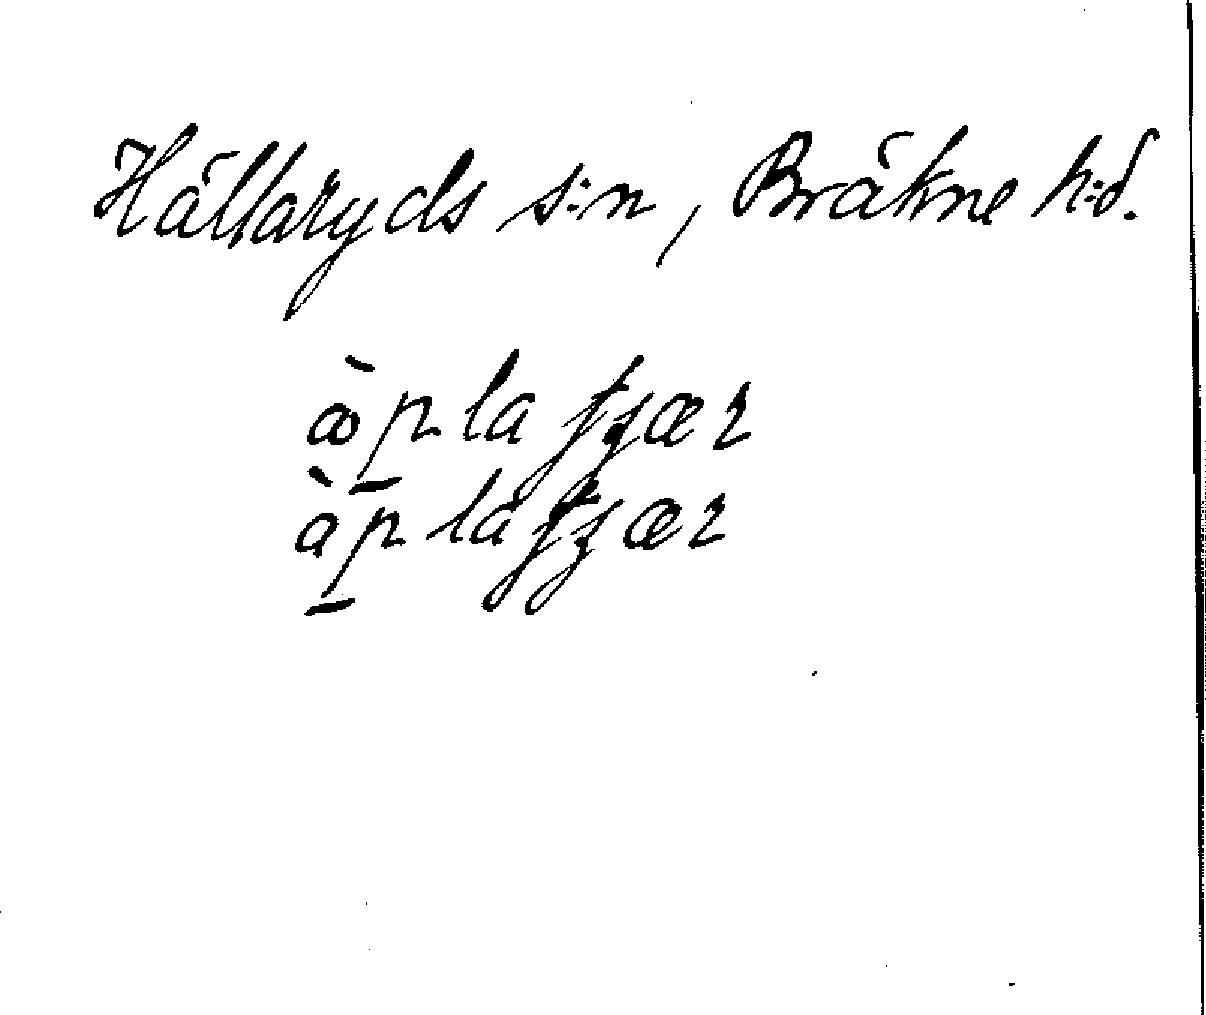 Hällaryds s:n, Bräkne h:d.
æ̀pla fʒær
àpla fʒær